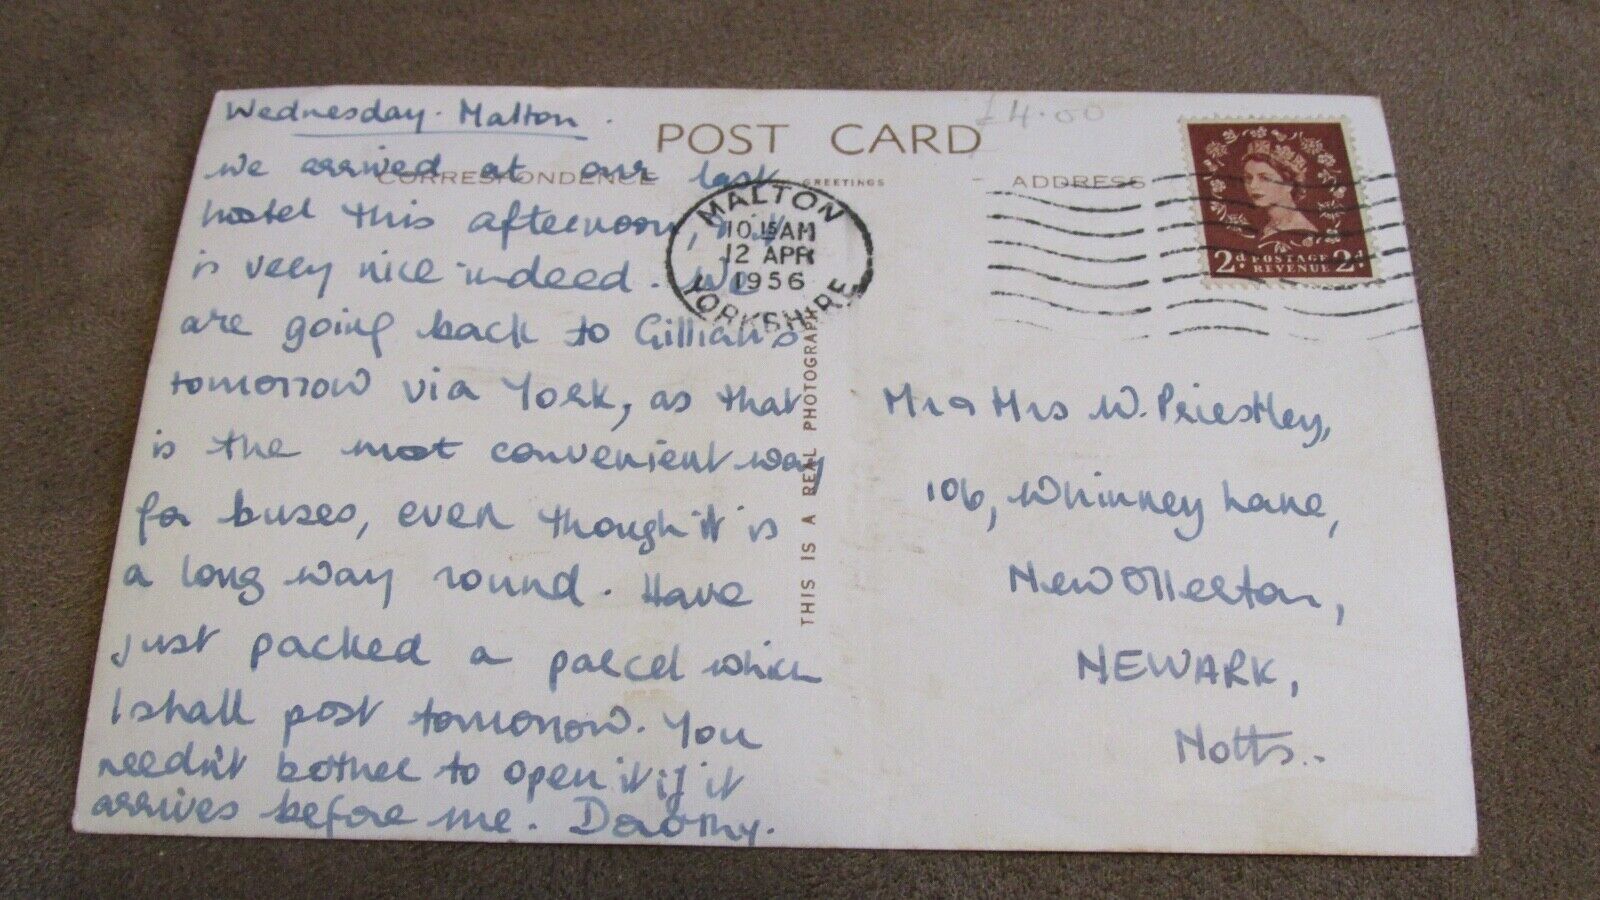 Wednesday. Malton.
POST CARD
£4.00
CORRESPONDENCE
GREETINGS
ADDRESS
We arrived at our last
hotel this afternoon,
is very nice indeed. We
are going back to Gillian's
tomorrow via York, as that
is the most convenient way
for buses, even though it is
a long way round. Have
just packed a parcel which
I shall post tomorrow. You
needn't bother to open it if it
arrives before me. Dorothy.
MALTON
10.15AM
12 APR
1956
YORKSHIRE
2d POSTAGE REVENUE 2d
THIS IS A REAL PHOTOGRAPH
Mr & Mrs W. Priestley,
106, Whinney Lane,
New Ollerton,
NEWARK,
Notts..